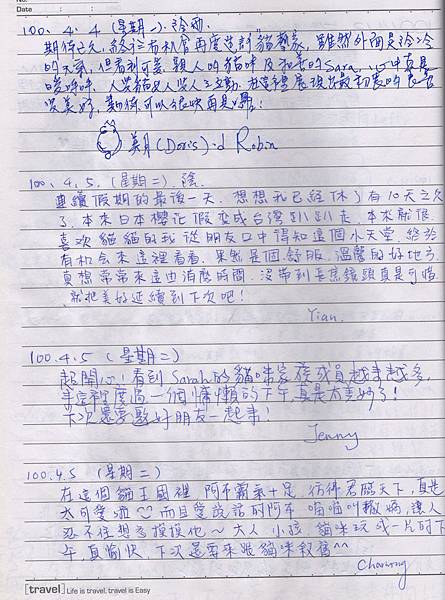 Date
100. 4. 4 (星期一). 冷雨.
期待已久, 終於有机會再度造訪"貓藝家", 雖然外面是冷冷
的天氣, 但看到可愛、親人的貓咪及和善的Sara, 心中真是
暖呼呼. 人
美好, 期待可以很快再見嘿!
(Doris) Robin
100. 4. 5. (星期二). 陰.
典續假期的最後一天. 想想我已經休了有10天之久
了. 本來日本櫻花假變成台灣趴趴走. 本來就很
喜歡貓貓的我從朋友口中得知這個小天堂. 終於
有机会來這裡看看. 果然是個舒服、溫馨的好地方.
真想常常來這由消磨時間. 沒帶到長焦鏡頭真是可惜.
就把美好延續到下次吧!
Yian.
100.4.5 (星期二)
超開心! 看到Sarah的貓咪家族成員越來越多,
來這裡度過一個慵懶的下午真是太美妙了!
下次還要跟好朋友一起來!
Jenny
100.4.5 (星期二)
在這個貓王國裡, 阿不霸氣十足, 彷彿君臨天下, 真是
太可愛啦 而且愛說話的阿不 喵喵叫 讓人
忍不住想去摸摸他~ 大人 小孩 貓咪玩成一片的下
午, 真愉快. 下次還要來跟貓咪敘舊^^
[travel] Life is travel, travel is Easy